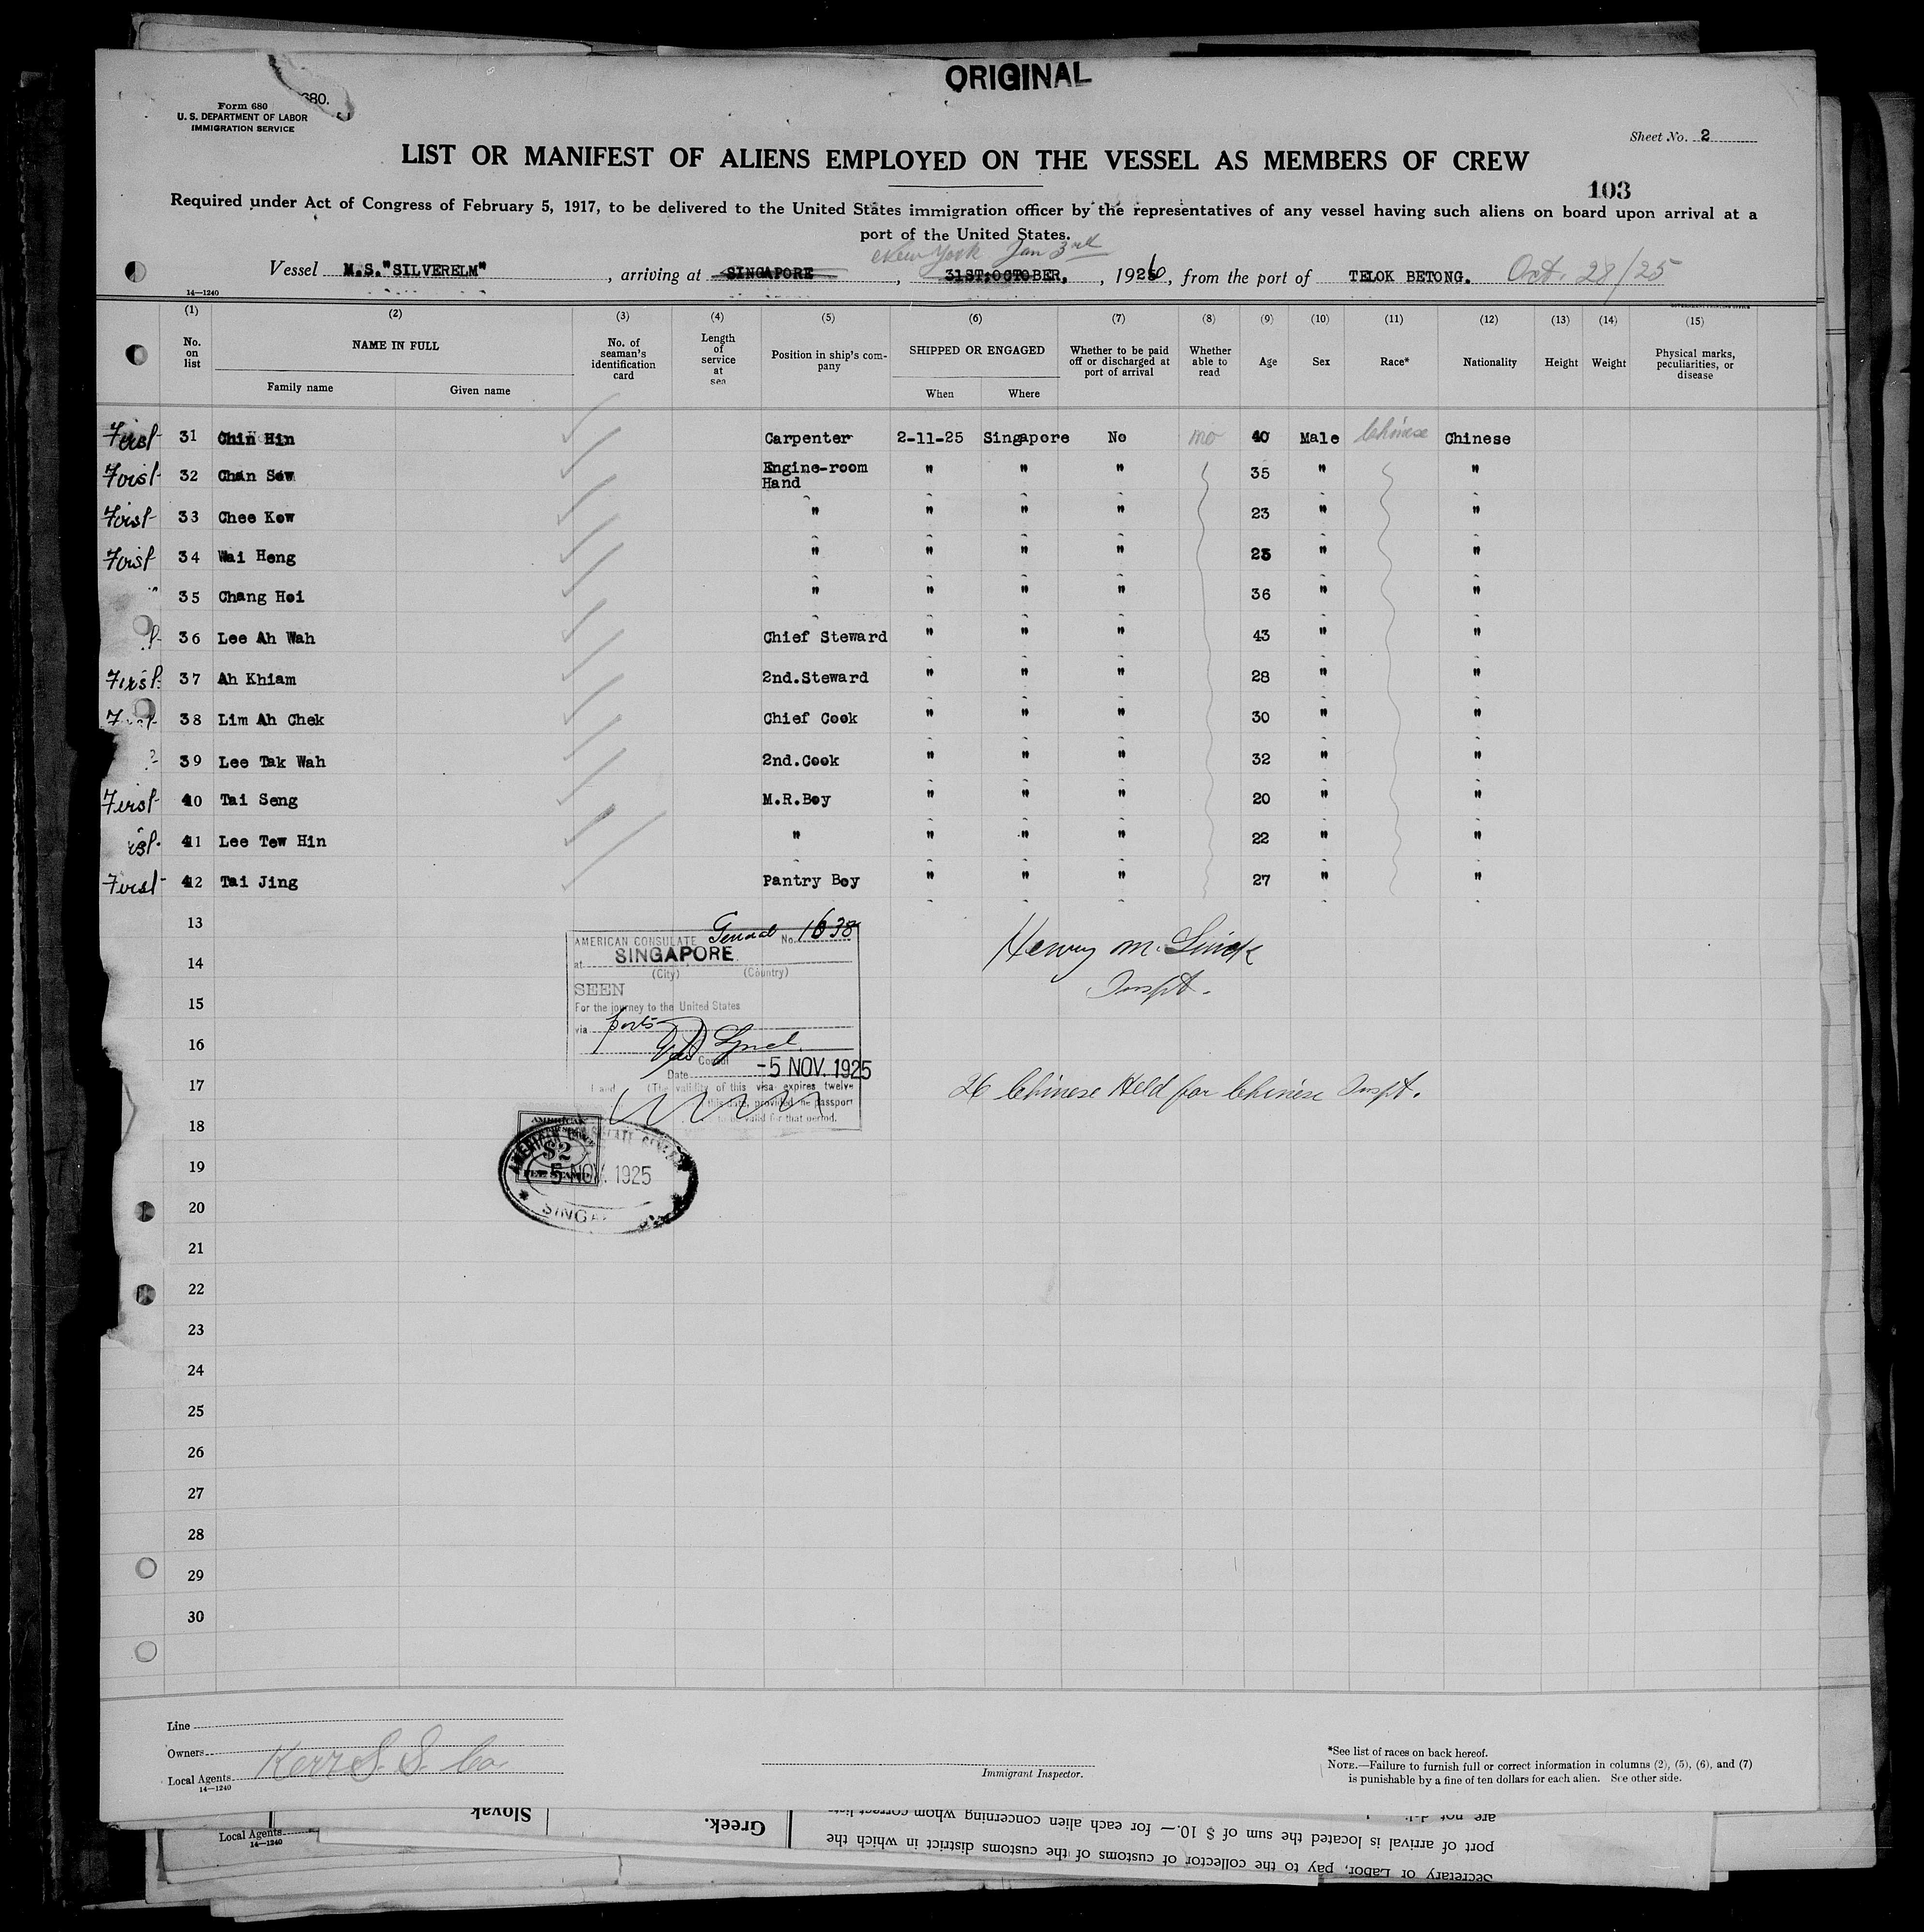 ORIGINAL
680.
Form 680
U. S. DEPARTMENT OF LABOR
IMMIGRATION SERVICE
Sheet No. 2
LIST OR MANIFEST OF ALIENS EMPLOYED ON THE VESSEL AS MEMBERS OF CREW
103
Required under Act of Congress of February 5, 1917, to be delivered to the United States immigration officer by the representatives of any vessel having such aliens on board upon arrival at a
port of the United States.
New York Jan 3rd
Vessel M.S. "SILVERELM", arriving at SINGAPORE, 31ST:OCTOBER, 1926, from the port of TELOK BETONG. Oct. 28/25
14—1240
(1) (2) (3) (4) (5) (6) (7) (8) (9) (10) (11) (12) (13) (14) (15)
No. on list NAME IN FULL Family name Given name No. of seaman's identification card Length of service at sea Position in ship's company SHIPPED OR ENGAGED When Where Whether to be paid off or discharged at port of arrival Whether able to read Age Sex Race* Nationality Height Weight Physical marks, peculiarities, or disease
First 31 Chin Hin Carpenter 2-11-25 Singapore No no 40 Male Chinese Chinese
First 32 Chan Sew Engine-room Hand " " " 35 " "
First 33 Chee Kow " " " " 23 " "
First 34 Wai Heng " " " " 25 " "
" 35 Chang Hoi " " " " 36 " "
36 Lee Ah Wah Chief Steward " " " 43 " "
First 37 Ah Khiam 2nd.Steward " " " 28 " "
38 Lim Ah Chek Chief Cook " " " 30 " "
39 Lee Tak Wah 2nd.Cook " " " 32 " "
First 40 Tai Seng M.R.Boy " " " 20 " "
41 Lee Tew Hin " " " " 22 " "
First 42 Tai Jing Pantry Boy " " " 27 " "
13
14
15
16
17
18
19
20
21
22
23
24
25
26
27
28
29
30
AMERICAN CONSULATE General No. 1638
at SINGAPORE
(City) (Country)
SEEN
For the journey to the United States
via ports
Consul
Date -5 NOV. 1925
(The validity of this visa expires twelve
this date, provided the passport
to be valid for that period.
AMERICAN
$2
FEE STAMP
AMERICAN CONSULATE GENERAL
5 NOV. 1925
Henry M.
Inspt.
26 Chinese Held for Chinese Inspt.
Line
Owners
Local Agents Kerr S. S. Co.
14—1240
Immigrant Inspector.
*See list of races on back hereof.
NOTE.—Failure to furnish full or correct information in columns (2), (5), (6), and (7)
is punishable by a fine of ten dollars for each alien. See other side.
Local Agents
14—1240
Slovak
Greek.
Secretary of Labor, pay to the collector of customs of the customs district in which the
port of arrival is located the sum of $ 10.— for each alien concerning whom correct lists
are not